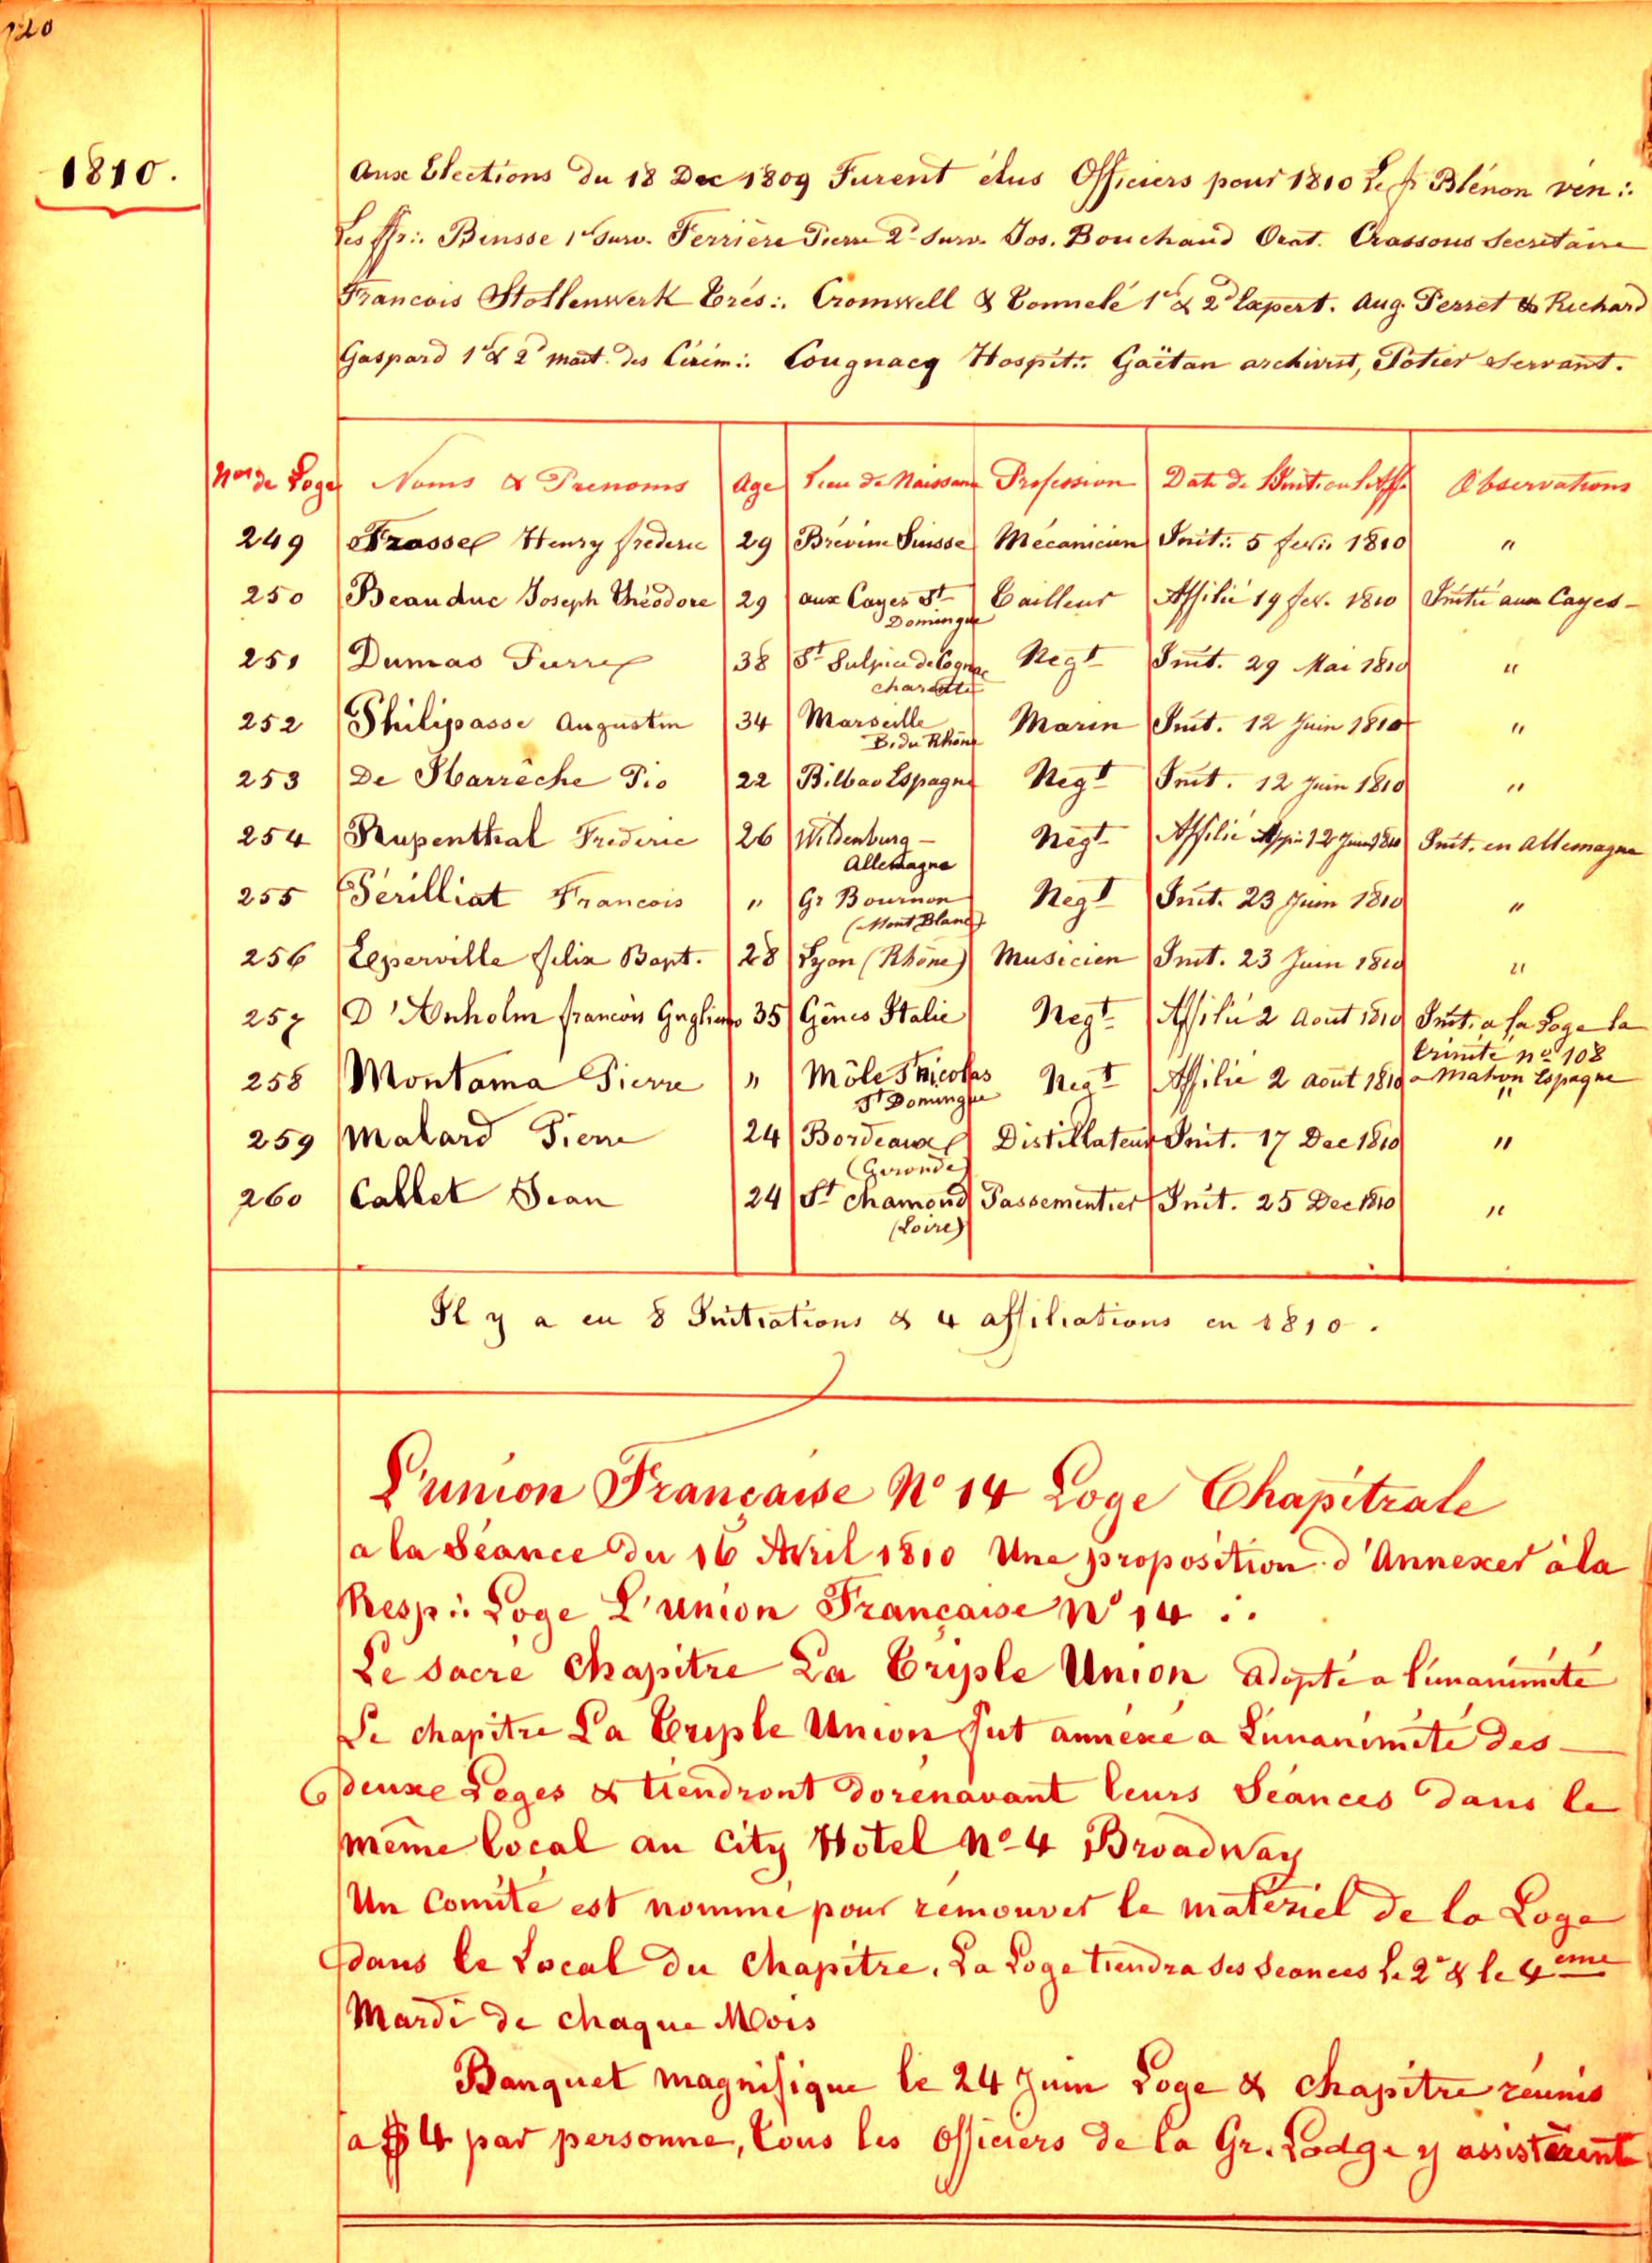 120
1810.
Aux Elections du 18 Dec 1809 Furent élus Officiers pour 1810 Le f Blénon vén∴
Les ffr∴ Binsse 1r Surv. Ferrière Pierre 2d Surv. Jos. Bouchaud Orat. Crassous Secrétaire
Francois Stollenwerk Trés∴ Cromwell & Tonnelé 1r & 2d Expert. Aug. Perret & Richard
Gaspard 1r & 2d mait. des Cérém∴ Cougnacq Hospit∴ Gaëtan archivist, Potier Servant.
Nos de Loge Noms & Prenoms Age Lieu de Naissance Profession Date de Observations
249 Frossel Henry frederic 29 Brévine Suisse Mécanicien Init∴ 5 fevr∴ 1810 "
250 Beauduc Joseph Théodore 29 aux Cayes St Domingue Tailleur Affilié 19 fev. 1810 Initié aux Cayes
251 Dumas Pierre 38 St Sulpice de Cognac charente Negt Init. 29 Mai 1810 "
252 Philipasse Augustin 34 Marseille B. du Rhône Marin Init. 12 Juin 1810 "
253 De Ibarrêche Pio 22 Bilbao Espagne Negt Init. 12 Juin 1810 "
254 Rupenthal Frederic 26 Wildenburg Allemagne Negt Affilié 12 Juin 1810 Init. en Allemagne
255 Périlliat Francois " Gr Bournon (Mont Blanc) Negt Init. 23 Juin 1810 "
256 Leperville felix Bapt. 28 Lyon (Rhône) Musicien Init. 23 Juin 1810 "
257 D'Anholm francois Guglielmo 35 Gênes Italie Negt Affilié 2 Aout 1810 Init. a la Loge la
Trinité no 108
258 Montama Pierre " Môle St Nicolas St Domingue Negt Affilié 2 aout 1810 a Mahon Espagne "
259 Malard Pierre 24 Bordeaux (Gironde) Distillateur Init. 17 Dec 1810 "
260 Callet Jean 24 St Chamond (Loire) Passementier Init. 25 Dec 1810 "
Il y a eu 8 Initiations & 4 affiliations en 1810.
L'union Française No 14 Loge Chapitrale
a la Séance du 16 Avril 1810 Une proposition d'Annexer à la
Resp∴ Loge L'union Française No 14 ∴
Le sacré Chapitre La Triple Union adopté a l'unanimité
Le chapitre La Triple Union fut annéxé a L'unanimité des
deux Loges & tiendront dorénavant leurs Séances dans le
même local au City Hotel No 4 Broadway
Un Comité est nommé pour remouver le matériel de la Loge
dans le Local du Chapitre. La Loge tiendra ses seances le 2e & le 4eme
Mardi de chaque Mois
Banquet magnifique le 24 Juin Loge & chapitre réunis
a $4 par personne, tous les Officiers de la Gr. Lodge y assistèrent